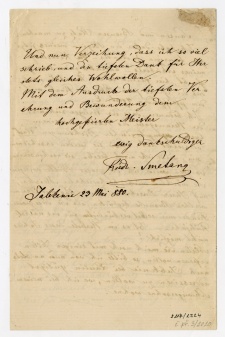 Und nun Verzeihung, dass ich so viel
schrieb und den tiefsten Dank für Ihr
stets gleiches Wohlwollen.
Mit dem Ausdruck der tiefsten Ver
ehrung und Bewunderung dem
hochgefeierten Meister
ewig dankschuldiger
Fried. Smetana
Jabkenic 23 Mai 880.